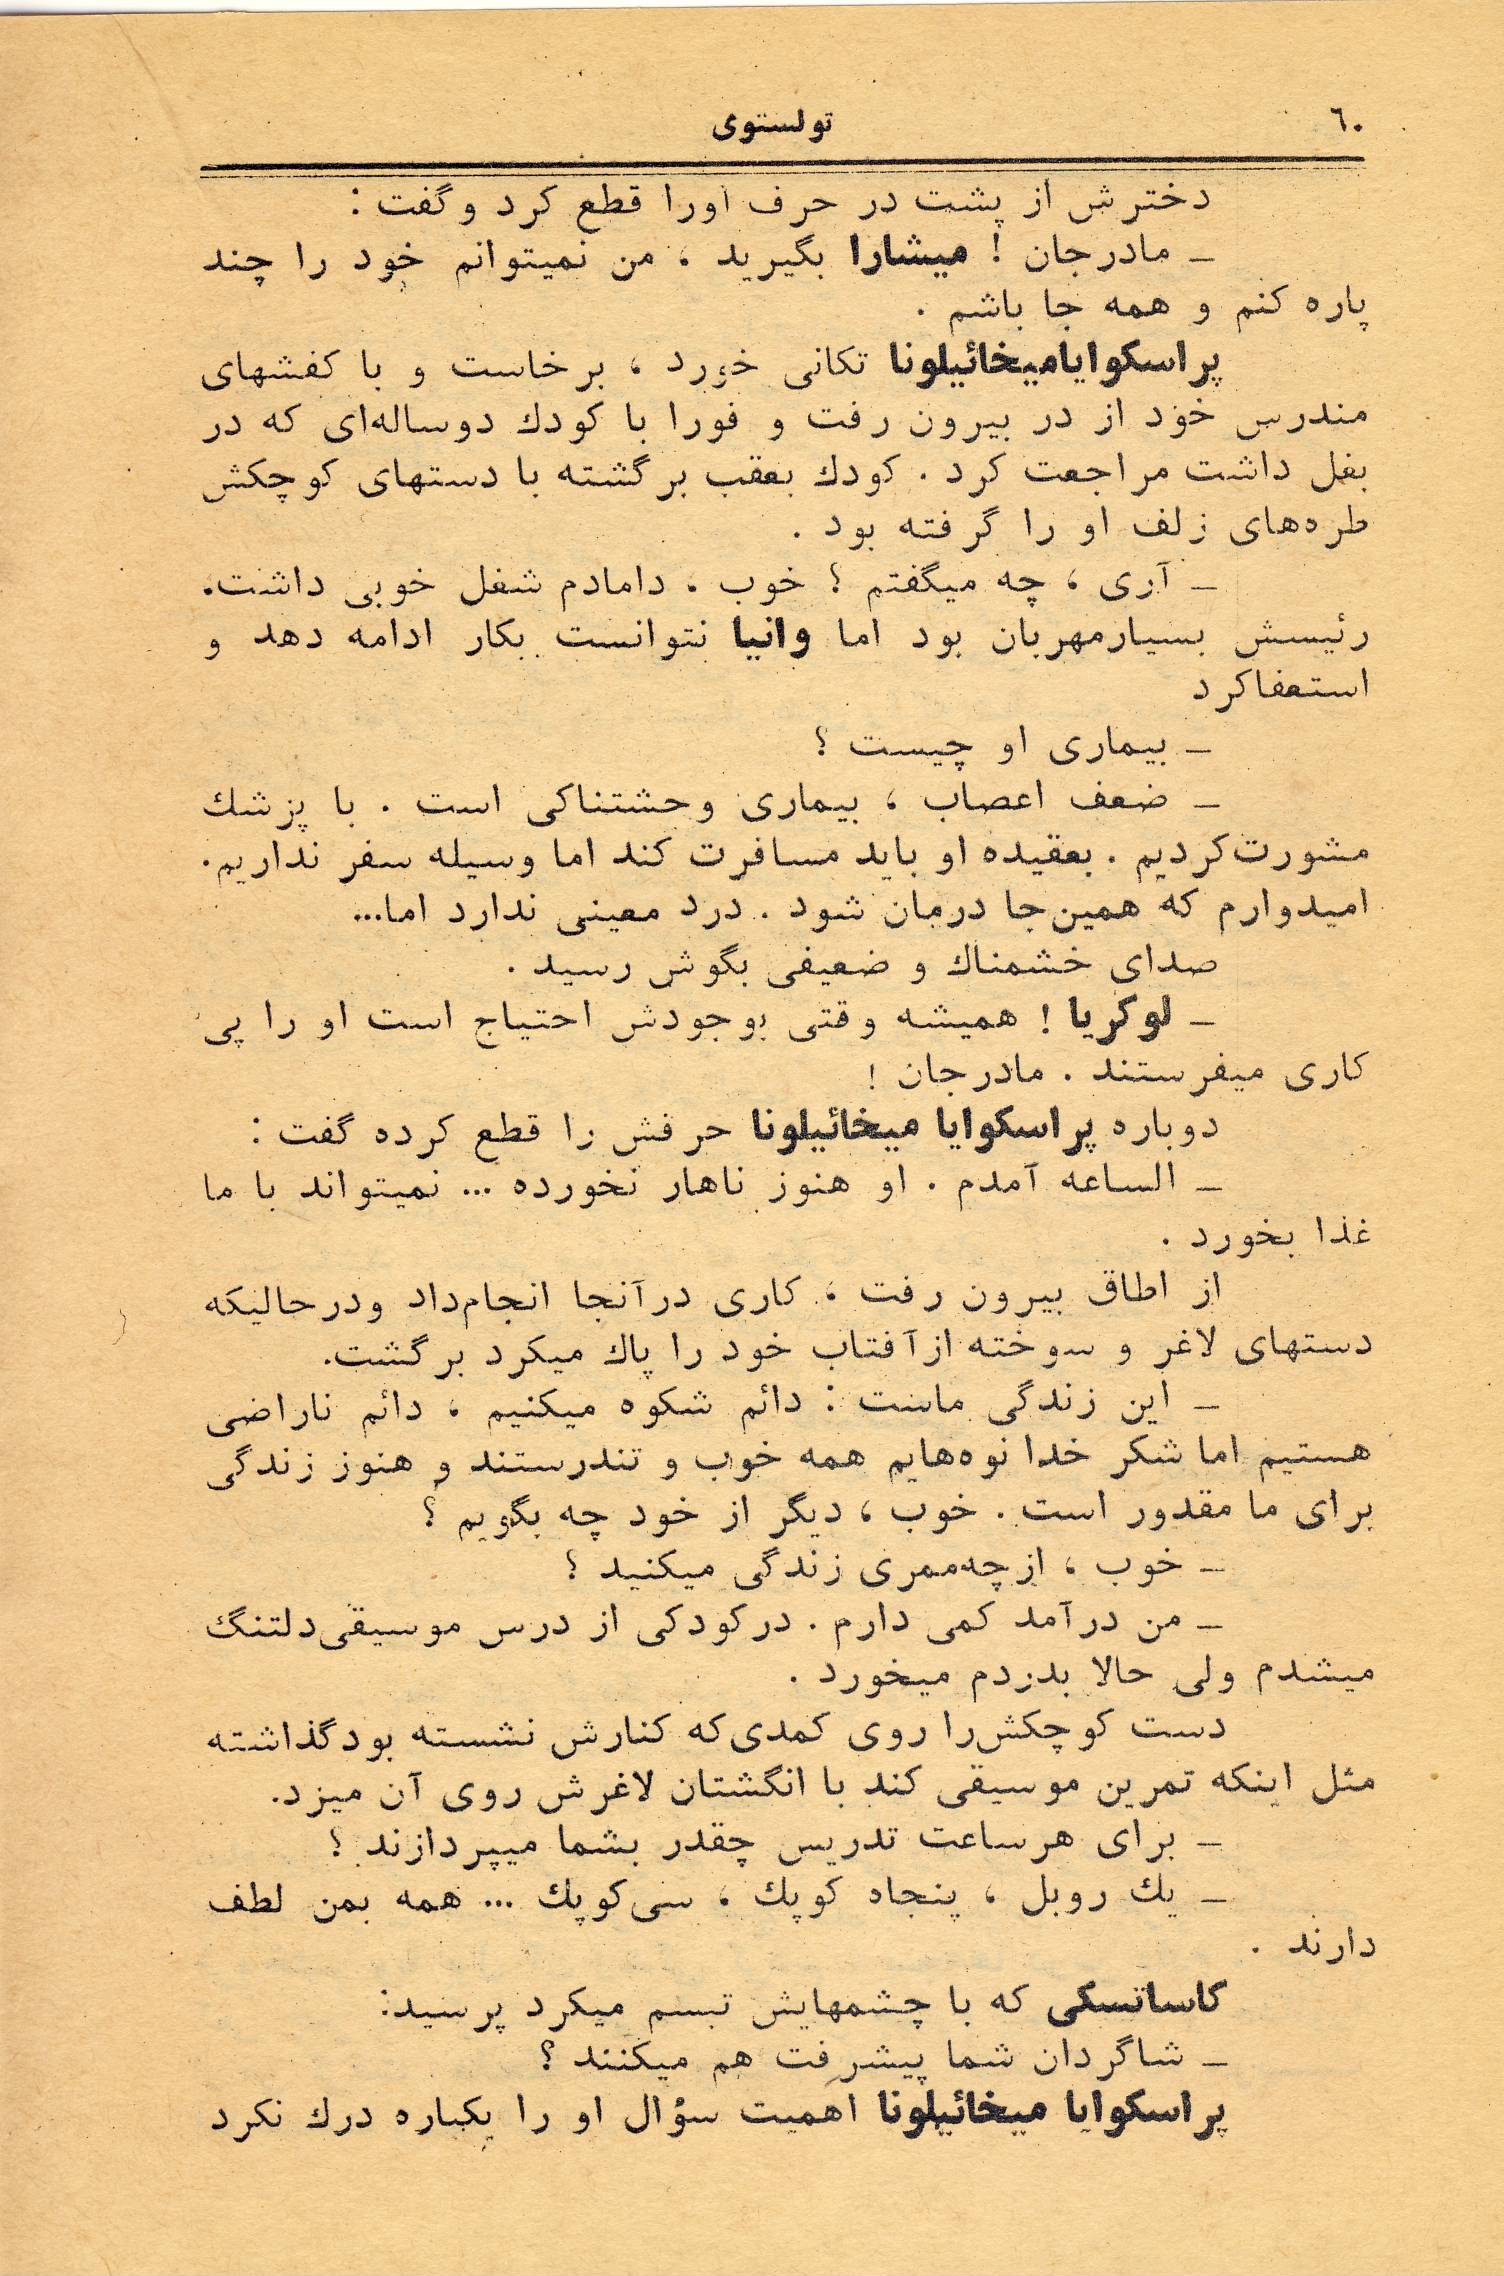 ٦٠
تولستوی
دخترش از پشت در حرف اورا قطع کرد و گفت :
ــ مادرجان ! میشارا بگیرید ، من نمیتوانم خود را چند
پاره کنم و همه جا باشم .
پراسکوایامیخائیلونا تکانی خورد ، برخاست و با کفشهای
مندرس خود از در بیرون رفت و فورا با کودك دوساله‌ای که در
بغل داشت مراجعت کرد . کودك بعقب برگشته با دستهای کوچکش
طره‌های زلف او را گرفته بود .
ــ آری ، چه میگفتم ؟ خوب . دامادم شغل خوبی داشت.
رئیسش بسیارمهربان بود اما وانیا نتوانست بکار ادامه دهد و
استعفاکرد
ــ بیماری او چیست ؟
ــ ضعف اعصاب ، بیماری وحشتناکی است . با پزشك
مشورت‌کردیم . بعقیده او باید مسافرت کند اما وسیله سفر نداریم.
امیدوارم که همین‌جا درمان شود . درد معینی ندارد اما...
صدای خشمناك و ضعیفی بگوش رسید .
ــ لوکریا ! همیشه وقتی بوجودش احتیاج است او را پی
کاری میفرستند . مادرجان !
دوباره پراسکوایا میخائیلونا حرفش را قطع کرده گفت :
ــ الساعه آمدم . او هنوز ناهار نخورده ... نمیتواند با ما
غذا بخورد .
از اطاق بیرون رفت ، کاری درآنجا انجام‌داد ودرحالیکه
دستهای لاغر و سوخته ازآفتاب خود را پاك میکرد برگشت.
ــ این زندگی ماست : دائم شکوه میکنیم ، دائم ناراضی
هستیم اما شکر خدا نوه‌هایم همه خوب و تندرستند و هنوز زندگی
برای ما مقدور است . خوب ، دیگر از خود چه بگویم ؟
ــ خوب ، ازچه‌ممری زندگی میکنید ؟
ــ من درآمد کمی دارم . درکودکی از درس موسیقی‌دلتنگ
میشدم ولی حالا بدردم میخورد .
دست کوچکش‌را روی کمدی‌که کنارش نشسته بودگذاشته
مثل اینکه تمرین موسیقی کند با انگشتان لاغرش روی آن میزد.
ــ برای هرساعت تدریس چقدر بشما میپردازند ؟
ــ یك روبل ، پنجاه کوپك ، سی‌کوپك ... همه بمن لطف
دارند .
کاساتسکی که با چشمهایش تبسم میکرد پرسید:
ــ شاگردان شما پیشرفت هم میکنند ؟
پراسکوایا میخائیلونا اهمیت سؤال او را یکباره درك نکرد